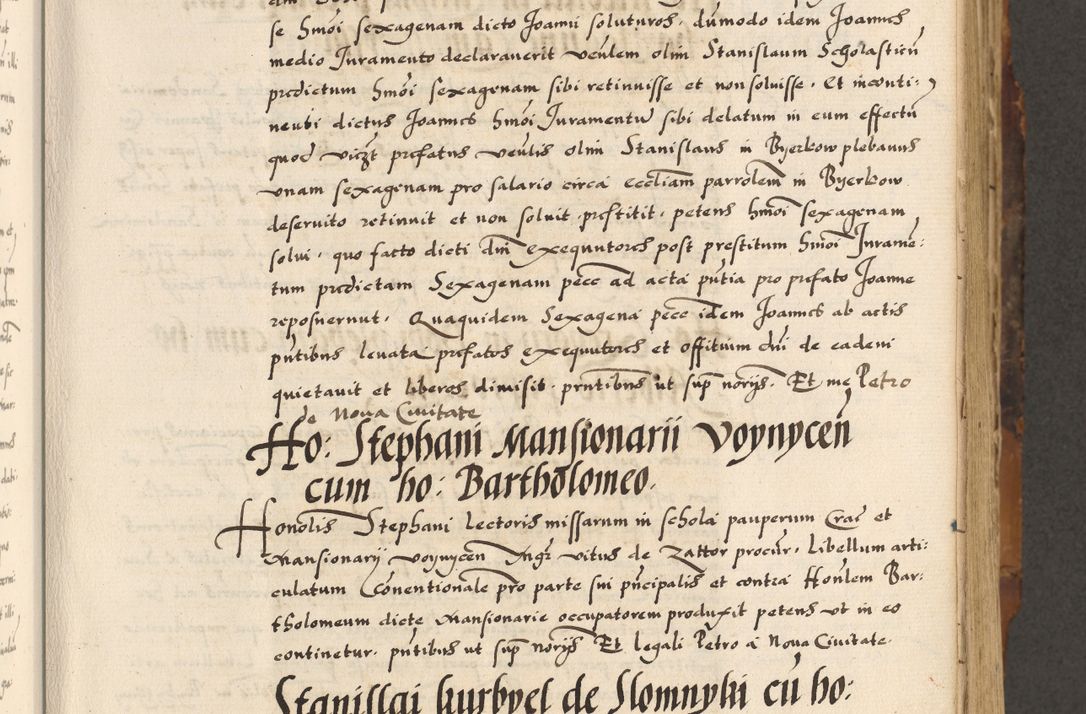 se hmõi sexagenam dicto Joanni soluturos. dumodo idem Joannes
medio Juramento declarauerit veñlem olim Stanislaum Scholasticũ
predictum hmõi sexagenam sibi retinuisse et non soluisse. Et inconti:
nenti dictus Joannes hmõi Juramentũ sibi delatum in eum effectũ
quod vic3t prefatus veñlis olim Stanislaus in Byerkow plebanus
vnam sexagenam pro salario circa eccliam parrolem in Byerkow
deseruito retinuit et non soluit prestitit. petens hmõi sexagenam
solui. quo facto dicti dñi exequutores post prestitum hmõi Jurame:
tum predictam Sexagenam pecc ad acta pñtia pro prefato Joanne
reposuerunt. Quaquidem Sexagena pecc idem Joannes ab actis
pñtibus leuata prefatos exequutores et offitium dñi de eadem
quietauit et liberos dimisit. prntibus ut sup norijs. Et me Petro
de Noua Ciuitate
Ho: Stephani Mansionarii Voynyceñ
cum ho: Bartholomeo.
Honolis Stephani Lectoris missarum in schola pauperum Crac et
Mansionarij Voynyceñ Mgr vitus de Zattor procur. Libellum arti:
culatum Conuentionale pro parte sui pñcipalis et contra Honlem Bar:
tholomeum dicte Mansionarie occupatorem produxit petens vt in eo
continetur. pñtibus ut sup norijs Et legali Petro a Noua Ciuitate.
Stanislai kurbyel de Slomnyki cũ ho: